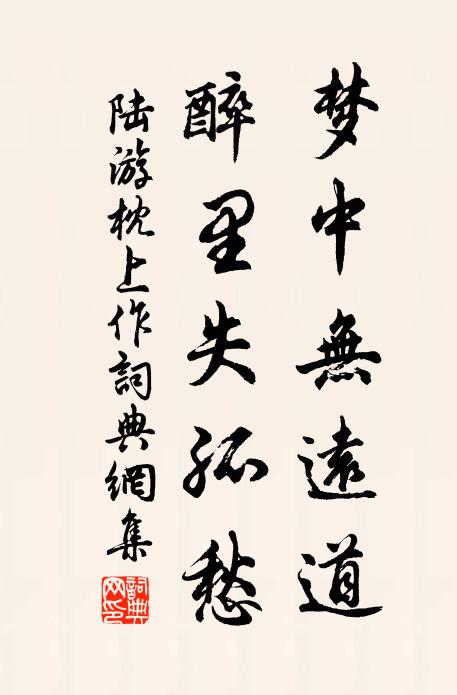 梦中無遠道
醉里失孤愁
陆游枕上作詞典網集
詞典网印